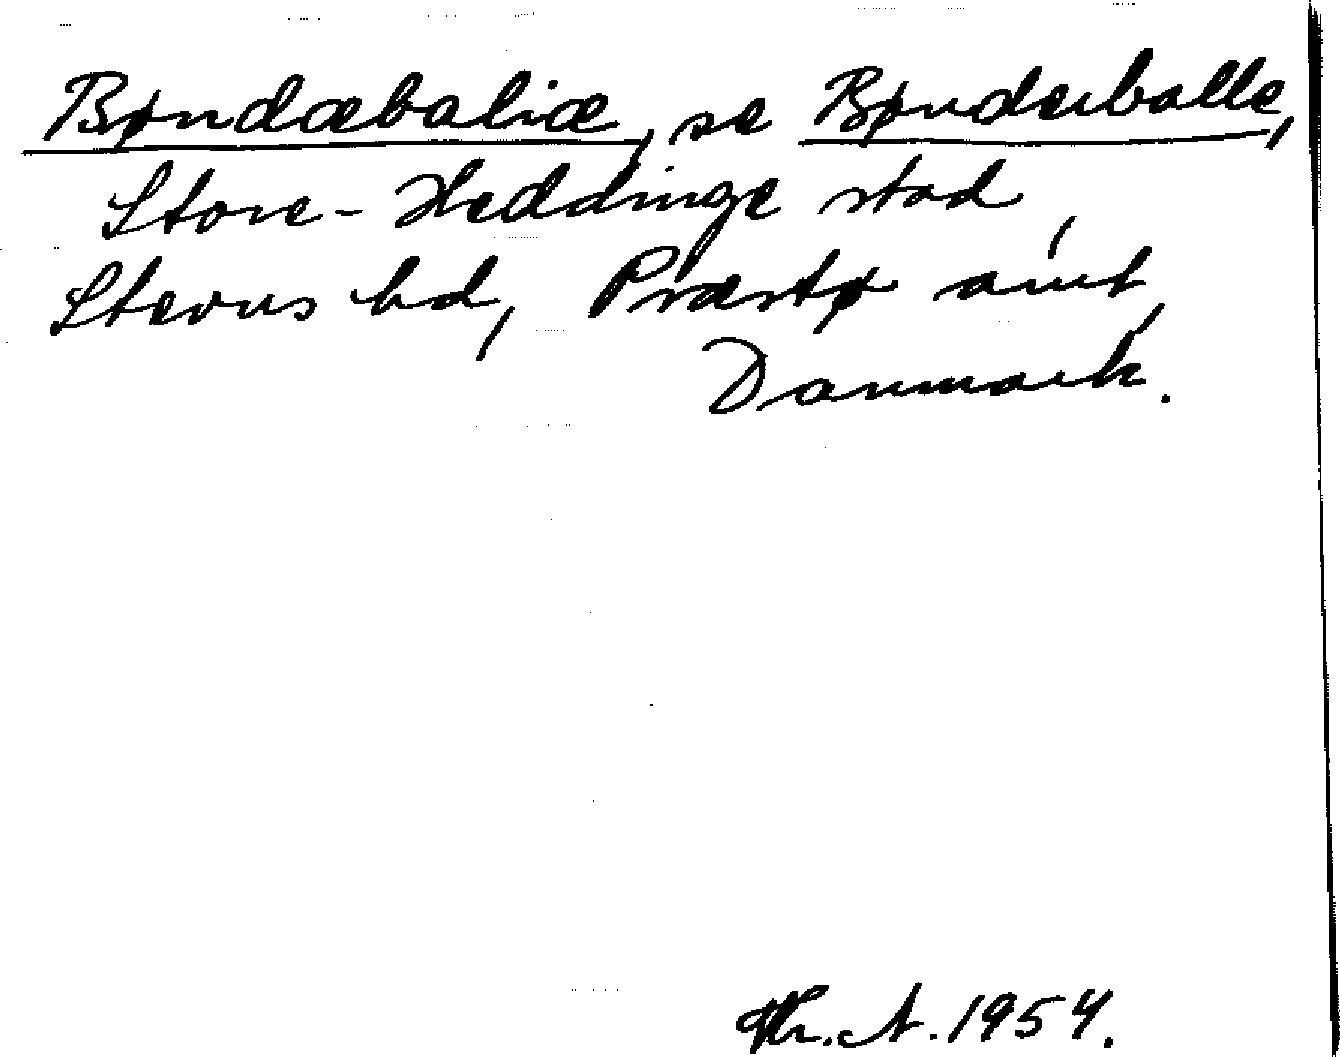 Bøndæbaliæ, se Bønderballe,
Store-Heddinge stad,
Stevns hd, Præstø amt,
Danmark.
Th. A. 1954.